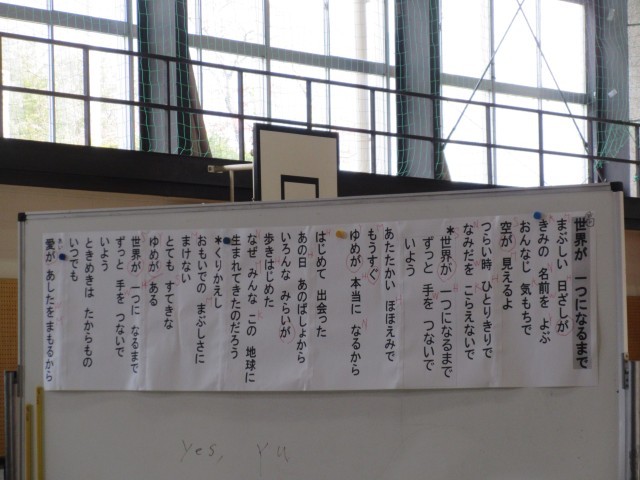 世界が 一つになるまで
まぶしい 日ざしが
きみの 名前を よぶ
おんなじ 気もちで
空が 見えるよ
つらい時 ひとりきりで
なみだを こらえないで
*世界が 一つになるまで
ずっと 手を つないで
いよう
あたたかい ほほえみで
もうすぐ
ゆめが 本当に なるから
はじめて 出会った
あの日 あのばしょから
いろんな みらいが
歩きはじめた
なぜ みんな この 地球に
生まれてきたのだろう
*くりかえし
おもいでの まぶしさに
まけない
とても すてきな
ゆめが ある
世界が 一つに なるまで
ずっと 手を つないで
いよう
ときめきは たからもの
いつでも
愛が あしたを まもるから
yes, YU